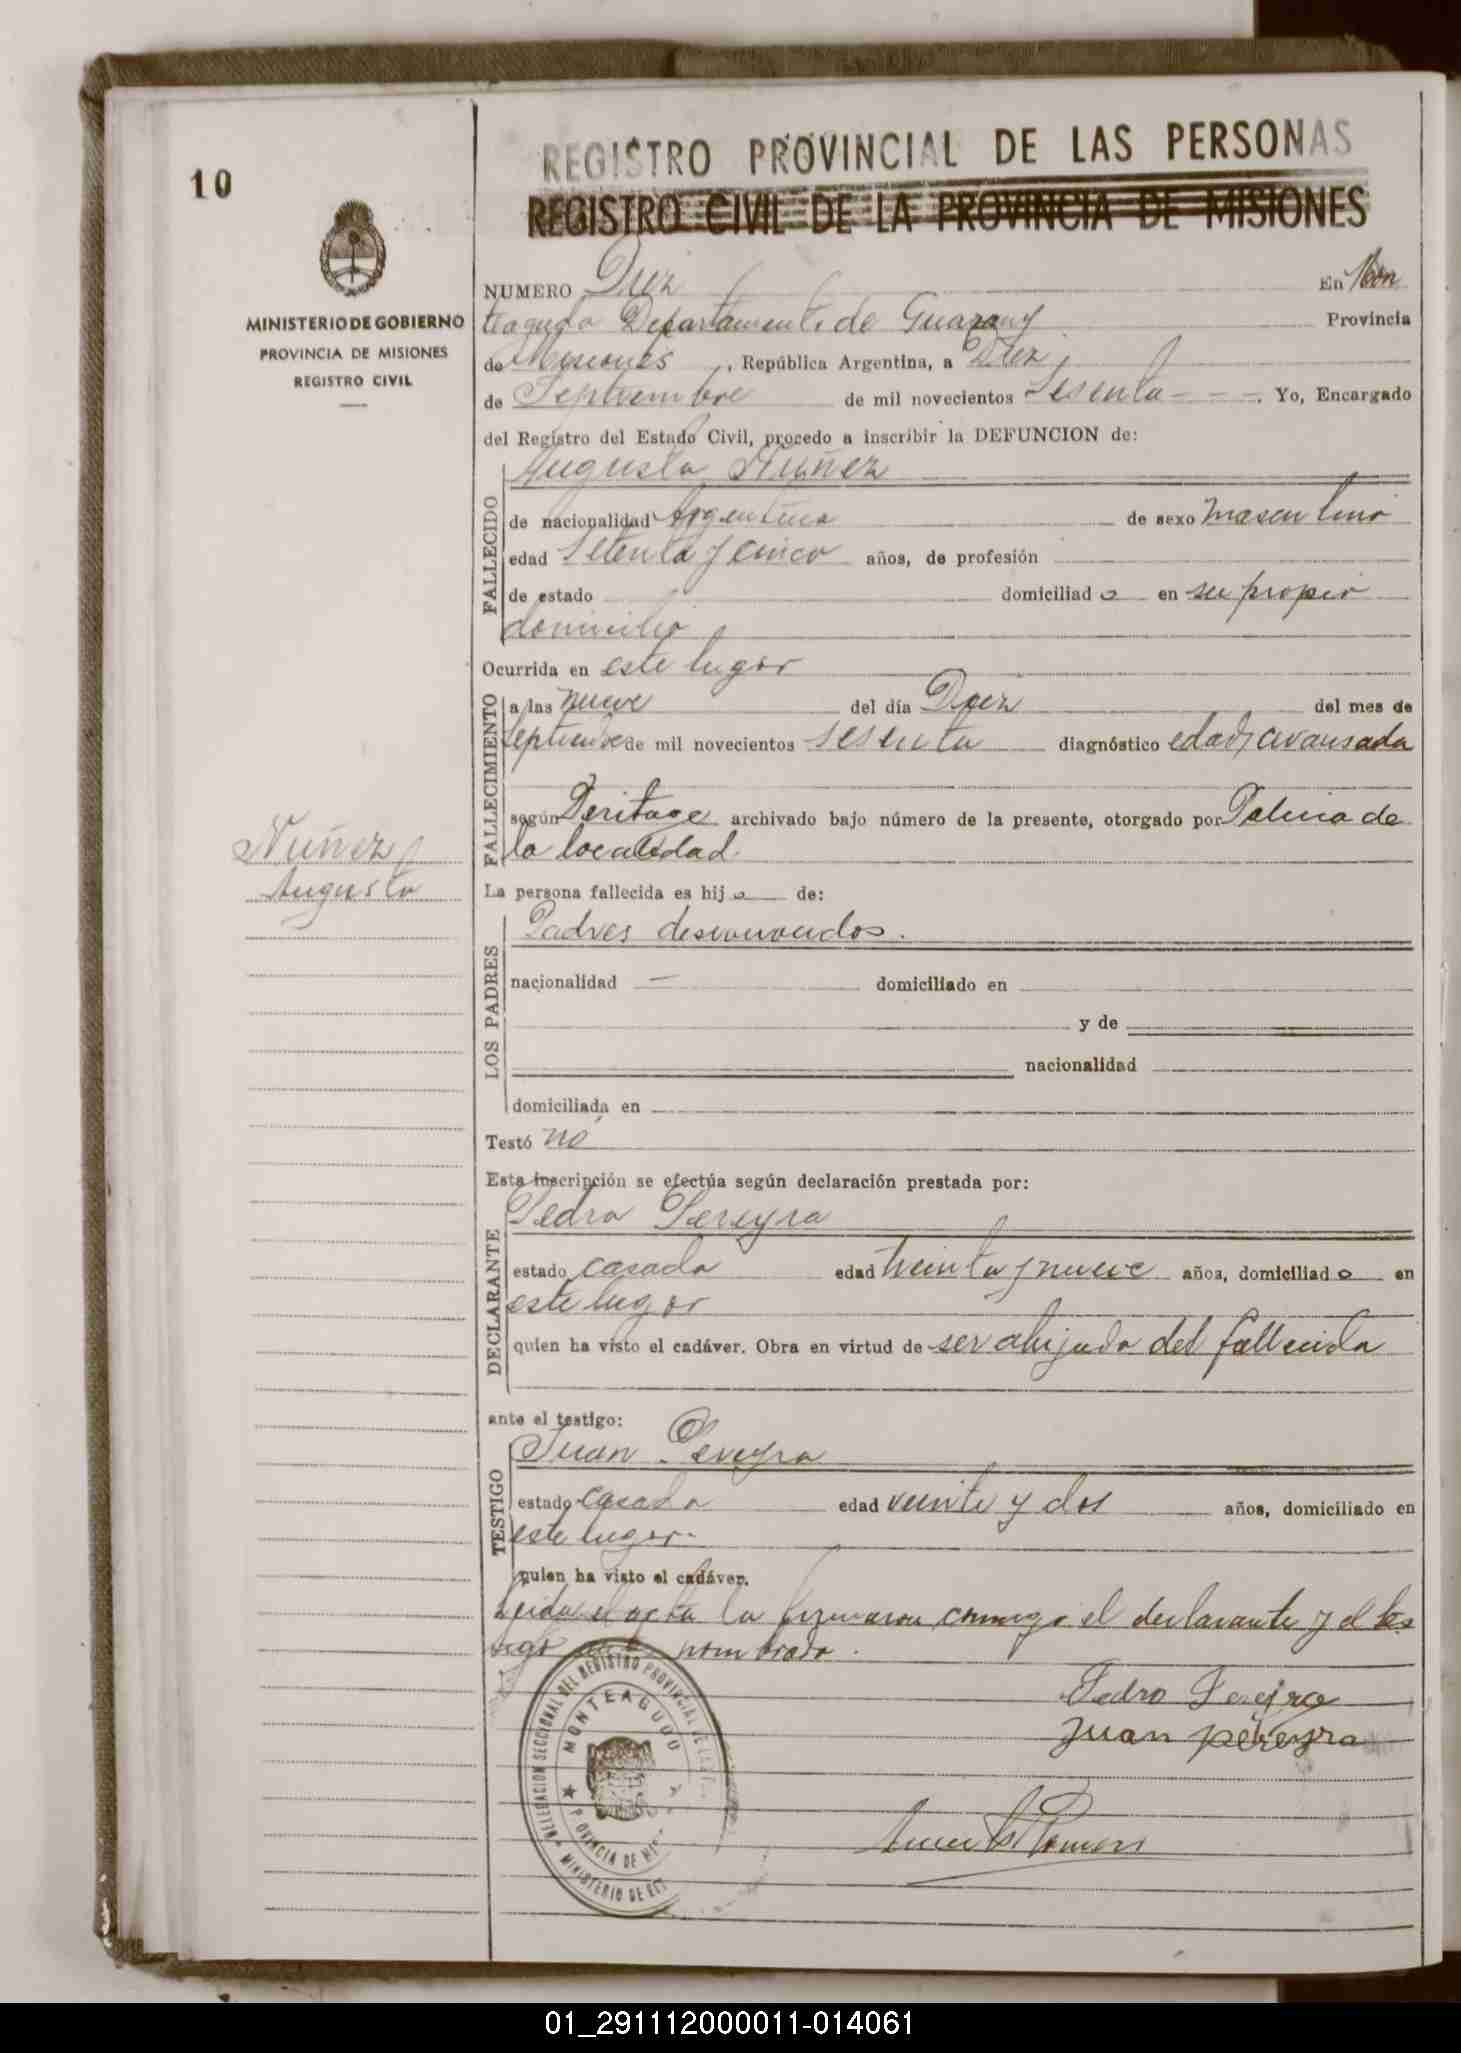 10
MINISTERIO DE GOBIERNO
PROVINCIA DE MISIONES
REGISTRO CIVIL
REGISTRO PROVINCIAL DE LAS PERSONAS
REGISTRO CIVIL DE LA PROVINCIA DE MISIONES
NUMERO Diez En Mon
teagudo Departamento de Guarany Provincia
de Misiones, República Argentina, a Diez
de Septiembre de mil novecientos sesenta - - -. Yo, Encargado
del Registro del Estado Civil, procedo a inscribir la DEFUNCION de:
FALLECIDO
Augusto Núñez
de nacionalidad Argentina de sexo masculino
edad Setenta y cinco años, de profesión
de estado domiciliad o en su propio
domicilio
Ocurrida en este lugar
FALLECIMIENTO
a las nueve del día Diez del mes de
Septiembre de mil novecientos sesenta diagnóstico edad avansada
según Peritage archivado bajo número de la presente, otorgado por Policia de
la localidad.
Núñez
Augusto
La persona fallecida es hij o de:
LOS PADRES
Padres desconocidos.
nacionalidad — domiciliado en
y de
nacionalidad
domiciliada en
Testó no
Esta inscripción se efectúa según declaración prestada por:
DECLARANTE
Pedro Pereyra
estado casado edad treinta y nueve años, domiciliad o en
este lugar
quien ha visto el cadáver. Obra en virtud de ser ahijado del fallecido
ante el testigo:
TESTIGO
Juan Pereyra
estado casado edad veinte y dos años, domiciliado en
este lugar.
quien ha visto el cadáver.
Leida el acta la firmaron conmigo el declarante y el tes
tigo nombrado.
DELEGACION SECCIONAL DEL REGISTRO PROVINCIAL DE LAS
MONTEAGUDO
PROVINCIA DE MIS
MINISTERIO DE
Pedro Pereira
Juan pereyra
01_291112000011-014061